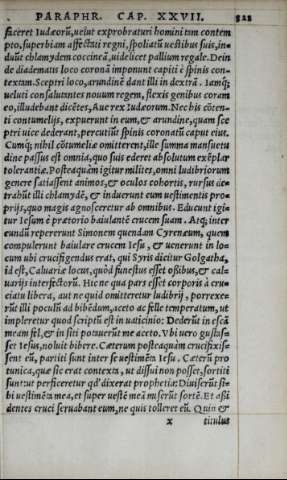 PARAPHR. CAP. XXVII.
faceret Iudæorũ, uelut exprobraturi homini tam contem
pto, superbiam affectati regni, spoliatũ uestibus suis, in⸗
duũt chlamydem coccineã, uidelicet pallium regale. Dein
de diadematis loco coronã imponunt capiti è spinis con⸗
textam. Sceptri loco, arundinẽ dant illi in dextrã. Iamq́;
ueluti consalutantes nouum regem, flexis genibus coram
eo, illudebant dicẽtes, Aue rex Iudæorum. Nec his cõten⸗
ti contumelijs, expuerunt in eum, & arundine, quam sce
ptri uice dederant, percutiũt spinis coronatũ caput eius.
Cumq́; nihil cõtumeliæ omitterent, ille summa mansuetu
dine passus est omnia, quo suis ederet absolutum exẽplar
tolerantiæ. Posteaquàm igitur milites, omni ludibriorum
genere satiassent animos, & oculos cohortis, rursus de⸗
trahũt illi chlamydẽ, & induerunt eum uestimentis pro⸗
prijs, quo magis agnosceretur ab omnibus. Educunt igi⸗
tur Iesum è prætorio baiulantẽ crucem suam. Atq́; inter
eundũ repererunt Simonem quendam Cyrenæum, quem
compulerunt baiulare crucem Iesu, & uenerunt in lo⸗
cum ubi crucifigendus erat, qui Syris dicitur Golgatha,
id est, Caluariæ locus, quòd funestus esset ossibus, & cal⸗
uarijs interfectorũ. Hic ne qua pars esset corporis à cru⸗
ciatu libera, aut ne quid omitteretur ludibrij, porrexe⸗
rũt illi poculũ ad bibẽdum, aceto ac felle temperatum, ut
impleretur quod scriptũ est in uaticinio: Dederũt in escã
meam fel, & in siti potauerũt me aceto. Vbi uero gustas⸗
set Iesus, noluit bibere. Cæterum posteaquàm crucifixis⸗
sent eũ, partiti sunt inter se uestimẽta Iesu. Cæterũ pro
tunica, quæ sic erat contexta, ut dissui non posset, sortiti
sunt: ut perficeretur qd' dixerat prophetia: Diuiserũt si⸗
bi uestimẽta mea, et super uestẽ meã miserũt sortẽ. Et assi
dentes cruci seruabant eum, ne quis tolleret eũ. Quin &
x titulus